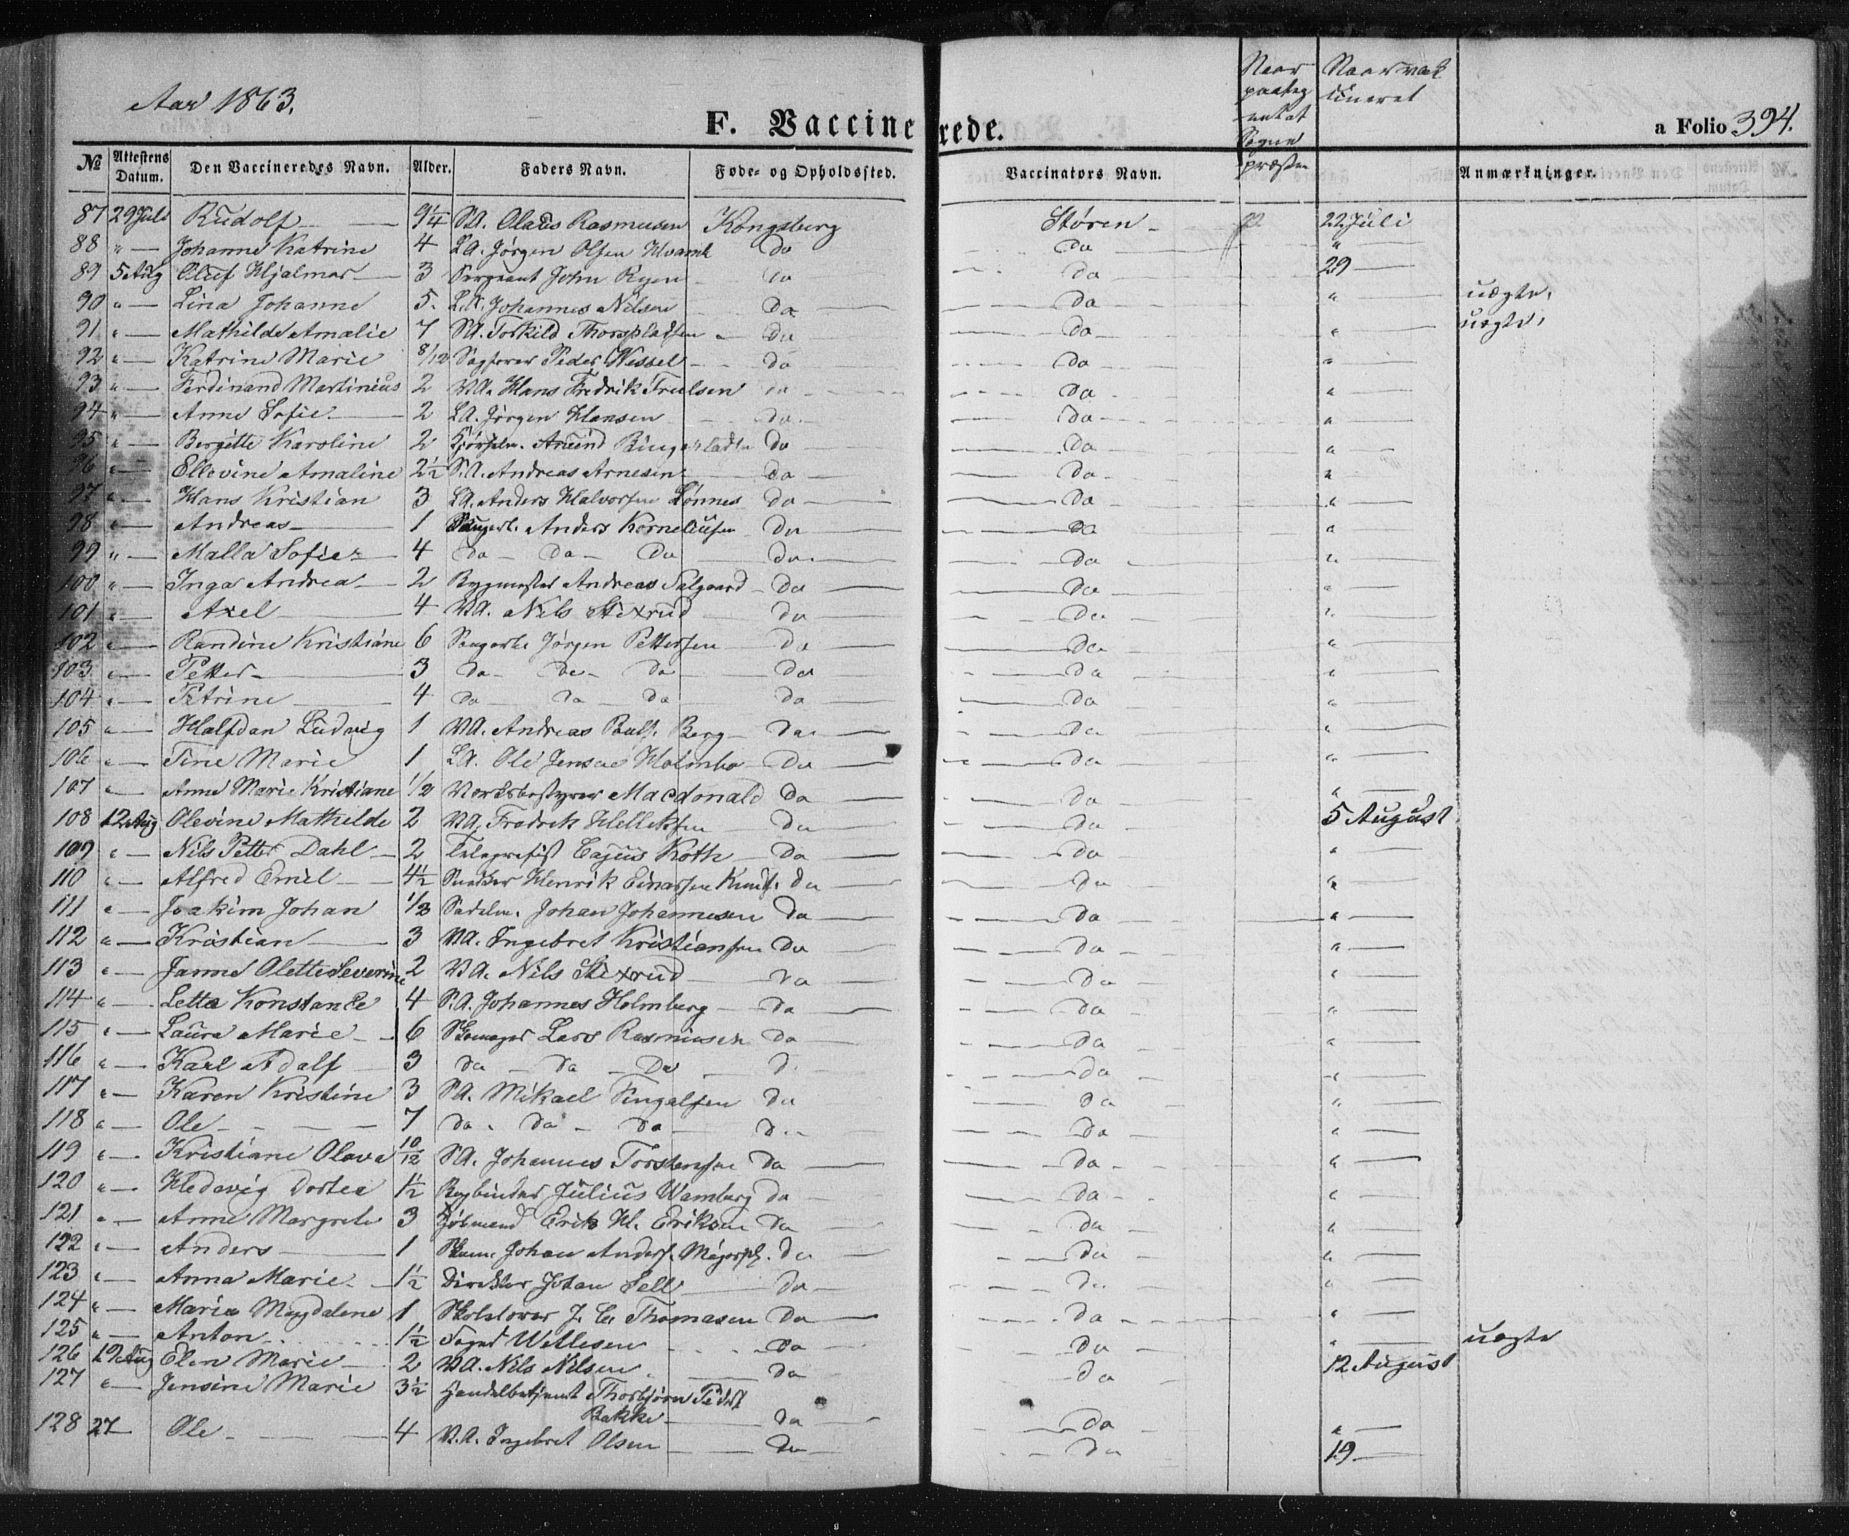 Aar 1863.
F. Vaccinerede.
a Folio 394.
Naar paateg
Sogne
præsten
Naar vak
cineret
№ Attestens Datum. Den Vaccineredes Navn. Alder. Faders Navn. Føde- og Opholdssted. Vaccinators Navn. Anmærkninger.
87 29 Juli Rudolf 9/4 SA. Olaus Rasmusen Kongsberg Støren 22 Juli
88 " Johanne Katrine 4 LA. Jørgen Olsen Do Do "
89 5 Aug Oluf Hjalmar 3 Sergeant John Ryen Do Do 29
90 " Lina Johanne 5. LA. Johannes Nilsen Do Do " uægte.
91. " Mathilde Amalie 7 SA. Torkild Do Do " uægte,
92 " Katrine Marie 8/12 Sagfører Peder Wessel Do Do "
93 " Ferdinand Martinius 2 VA. Hans Fredrik Truelsen Do Do "
94 " Anne Sofie 2 LA. Jørgen Hansen Do Do "
95 " Bergitte Karoline 2 Anund Do Do "
96 " Ellevine Amaline 2½ SA. Andreas Arnesen Do Do "
97 " Hans Kristian 3 LA. Anders Halvorsen Lønnes Do Do "
98 " Andreas 1 Anders Korneliusen Do Do "
99 " Malla Sofie 4 Do Do Do Do Do "
100 " Inga Andrea 2 Bygmester Andreas Do Do "
101 " Axel 4 VA. Nils Stixrud Do Do "
102 " Randine Kristiane 6 Jørgen Pettersen Do Do "
103 " Petter 3 Do Do Do Do Do "
104 " Petrine 4 Do Do Do Do Do "
105 " Halfdan Ludvig 1 VA. Andreas Berg Do Do "
106 " Tine Marie 1 LA. Ole Jensen Holmbo Do Do "
107 " Anne Marie Kristiane 1/2 Værksbestyrer Macdonald Do Do "
108 12 Aug Olevine Mathilde 2 VA. Fredrik Helleksen Do Do 5 August
109 " Nils Petter Dahl 2 Telegrafist Cajus Koth Do Do "
110 " Alfred Emil 4½ Snedker Henrik Einarsen Do Do "
111 " Joakim Johan 1/3 Sadelm. Johan Johannesen Do Do "
112 " Kristian 3 VA. Ingebret Kristiansen Do Do "
113 " Janne Olette Severine 2 VA. Nils Stixrud Do Do "
114 " Letta Konstance 4 SA. Johannes Holmberg Do Do "
115 " Laura Marie 6 Skomager Lars Rasmusen Do Do "
116 " Karl Adolf 3 Do Do Do D. Do "
117 " Karen Kristine 3 SA. Mikael Do Do "
118 " Ole 7 Do Do Do D. Do "
119 " Kristiane Olava 10/12 SA. Johannes Torstensen Do Do "
120 " Hedevig Dortea 1½ Bogbinder Julius Wamberg Do Do "
121 " Anne Margrete 3 Erik H. Eriksen Do Do "
122 " Anders 1 Skom. Johan Anders. Do Do "
123 " Anna Marie 1½ Direktør Johan Sell Do Do "
124 " Maria Magdalene 1 Skolelærer J. C. Thomasen Do Do "
125 " Anton 1½ Foged Willesen Do Do " uægte
126 19 Aug Elen Marie 2 VA. Nils Nilsen Do Do 12 August
127 " Jensine Marie 3½ Handelbetjent Thorbjørn Peders.
Bakke Do Do "
128 27 Ole 4 VA. Ingebret Olsen Do Do 19